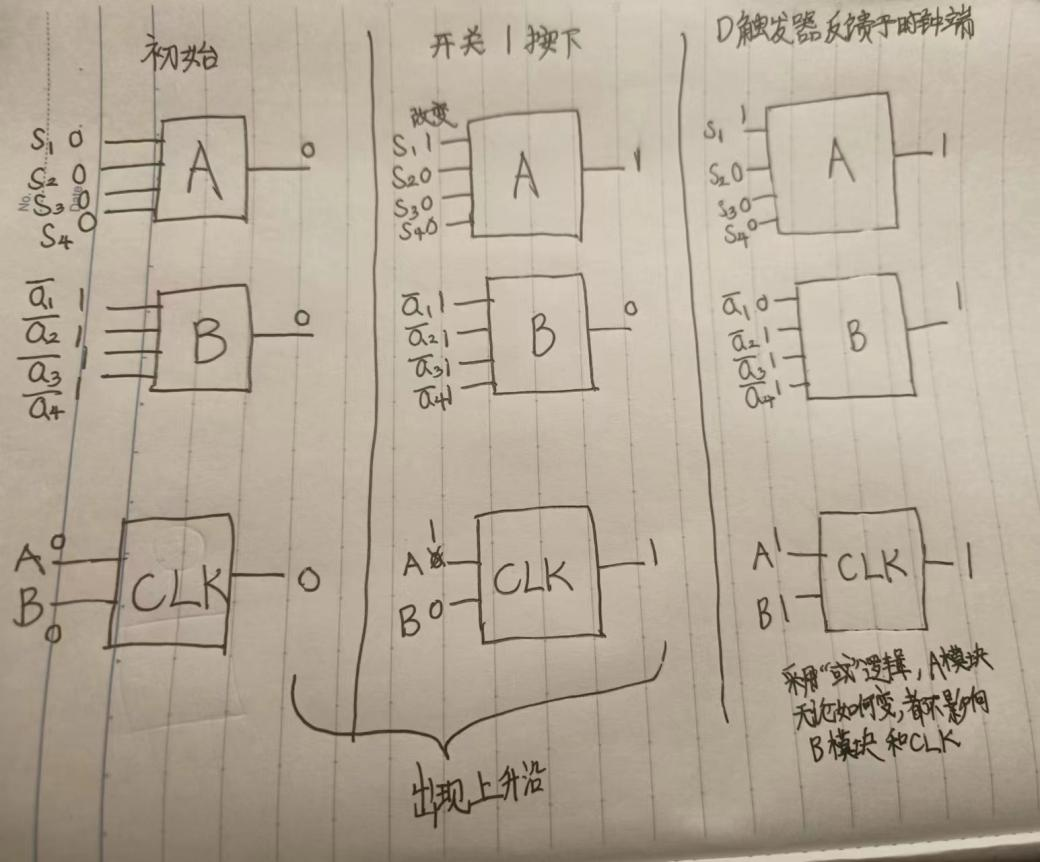 初始
S₁ 0
S₂ 0
S₃ 0
S₄ 0
A
0
a̅₁ 1
a̅₂ 1
a̅₃ 1
a̅₄ 1
B
0
A 0
B 0
CLK
0
开关1按下
改变
S₁ 1
S₂ 0
S₃ 0
S₄ 0
A
1
a̅₁ 1
a̅₂ 1
a̅₃ 1
a̅₄ 1
B
0
A 1
B 0
CLK
1
出现上升沿
D触发器反馈于时钟端
S₁ 1
S₂ 0
S₃ 0
S₄ 0
A
1
a̅₁ 0
a̅₂ 1
a̅₃ 1
a̅₄ 1
B
1
A 1
B 1
CLK
1
采用“或”逻辑，A模块
无论如何变，都不影响
B模块和CLK
No.
Date